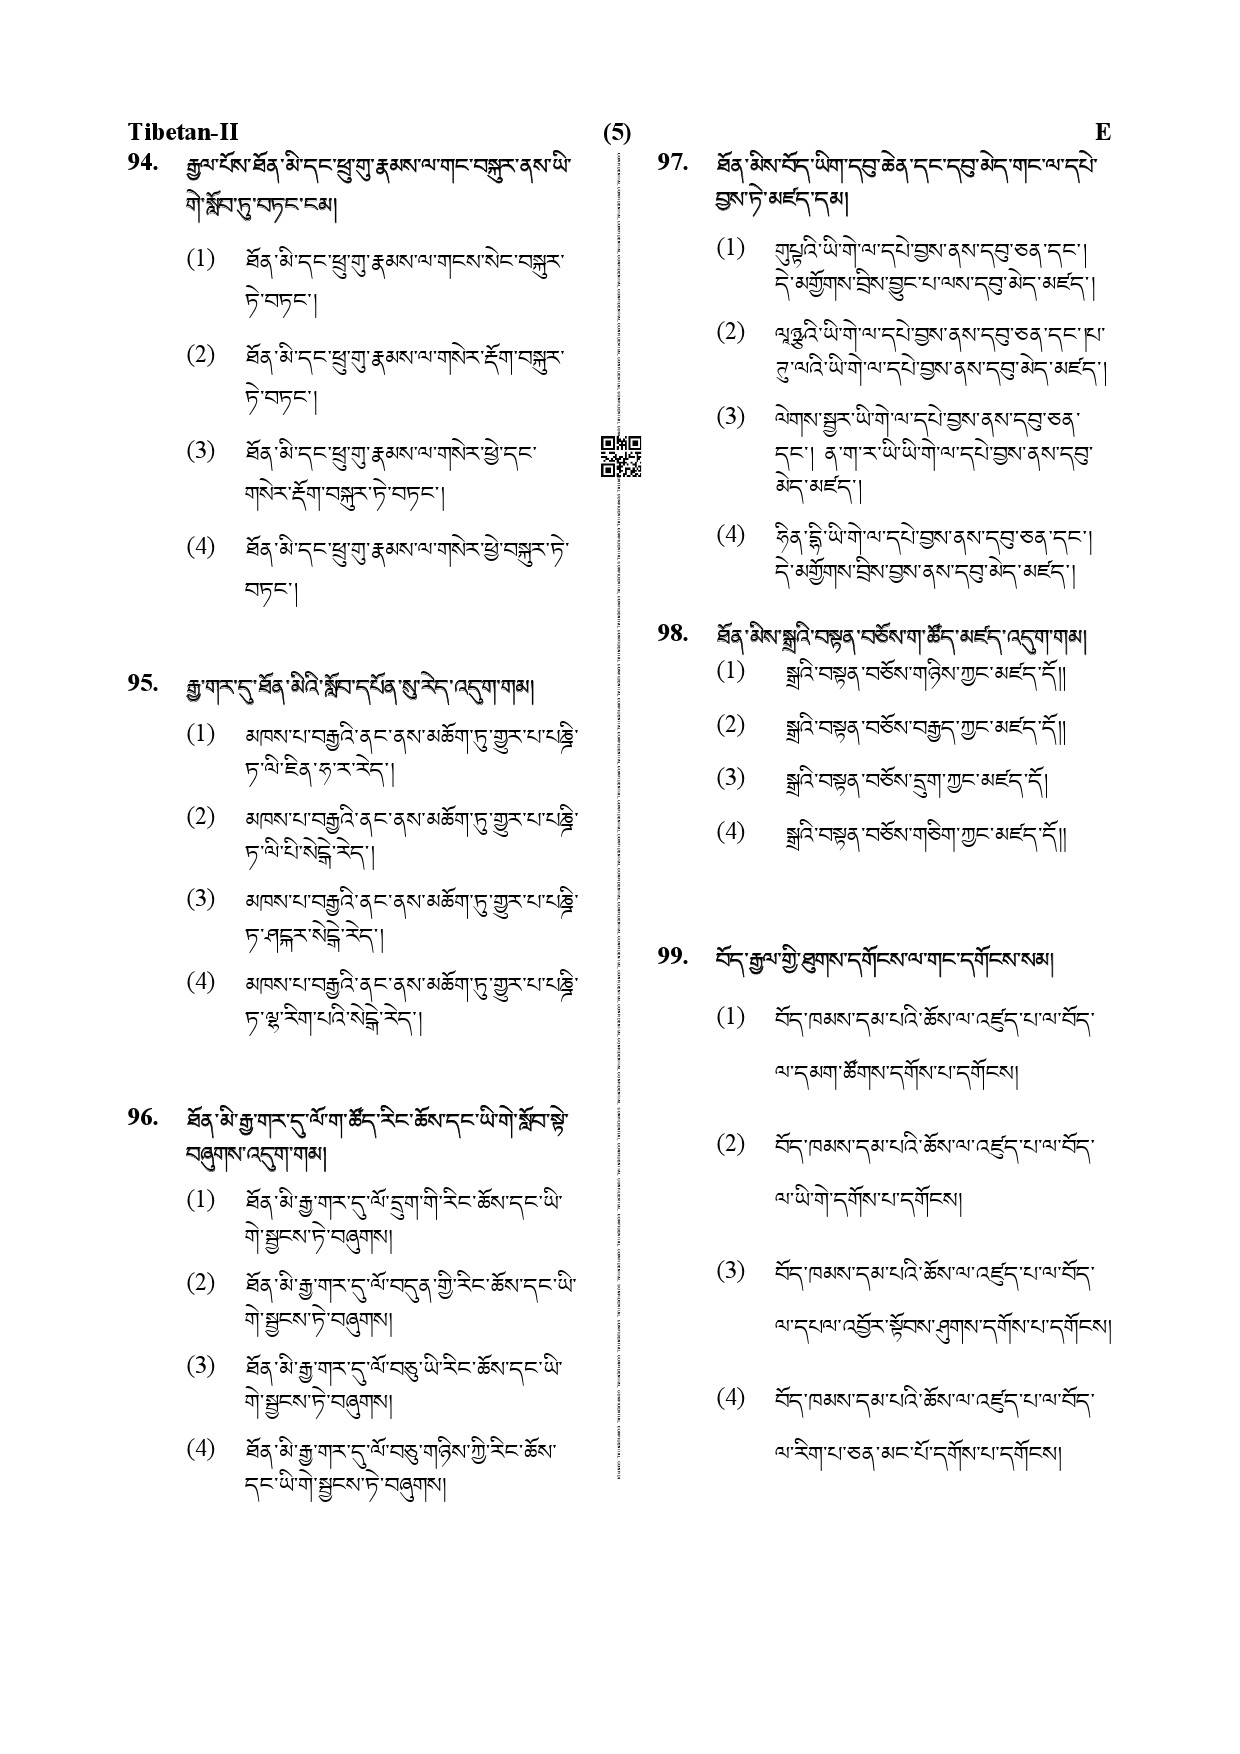 Tibetan-II (5) E
94. རྒྱལ་པོས་ཐོན་མི་དང་ཕྲུ་གུ་རྣམས་ལ་གང་བསྐུར་ནས་ཡི་
གེ་སློབ་ཏུ་བཏང་ངམ།
(1) ཐོན་མི་དང་ཕྲུ་གུ་རྣམས་ལ་གངས་སེང་བསྐུར་
ཏེ་བཏང་།
(2) ཐོན་མི་དང་ཕྲུ་གུ་རྣམས་ལ་གསེར་རྡོག་བསྐུར་
ཏེ་བཏང་།
(3) ཐོན་མི་དང་ཕྲུ་གུ་རྣམས་ལ་གསེར་ཕྱེ་དང་
གསེར་རྡོག་བསྐུར་ཏེ་བཏང་།
(4) ཐོན་མི་དང་ཕྲུ་གུ་རྣམས་ལ་གསེར་ཕྱེ་བསྐུར་ཏེ་
བཏང་།
95. རྒྱ་གར་དུ་ཐོན་མིའི་སློབ་དཔོན་སུ་རེད་འདུག་གམ།
(1) མཁས་པ་བརྒྱའི་ནང་ནས་མཆོག་ཏུ་གྱུར་པ་པཎྜི་
ཏ་ལི་ཇིན་ཧ་ར་རེད་།
(2) མཁས་པ་བརྒྱའི་ནང་ནས་མཆོག་ཏུ་གྱུར་པ་པཎྜི་
ཏ་ལི་པི་སེངྒེ་རེད་།
(3) མཁས་པ་བརྒྱའི་ནང་ནས་མཆོག་ཏུ་གྱུར་པ་པཎྜི་
ཏ་ཤངྐར་སེངྒེ་རེད་།
(4) མཁས་པ་བརྒྱའི་ནང་ནས་མཆོག་ཏུ་གྱུར་པ་པཎྜི་
ཏ་ལྷ་རིག་པའི་སེངྒེ་རེད་།
96. ཐོན་མི་རྒྱ་གར་དུ་ལོ་ག་ཚོད་རིང་ཆོས་དང་ཡི་གེ་སློབ་སྟེ་
བཞུགས་འདུག་གམ།
(1) ཐོན་མི་རྒྱ་གར་དུ་ལོ་དྲུག་གི་རིང་ཆོས་དང་ཡི་
གེ་སྦྱངས་ཏེ་བཞུགས།
(2) ཐོན་མི་རྒྱ་གར་དུ་ལོ་བདུན་གྱི་རིང་ཆོས་དང་ཡི་
གེ་སྦྱངས་ཏེ་བཞུགས།
(3) ཐོན་མི་རྒྱ་གར་དུ་ལོ་བཅུ་ཡི་རིང་ཆོས་དང་ཡི་
གེ་སྦྱངས་ཏེ་བཞུགས།
(4) ཐོན་མི་རྒྱ་གར་དུ་ལོ་བཅུ་གཉིས་ཀྱི་རིང་ཆོས་
དང་ཡི་གེ་སྦྱངས་ཏེ་བཞུགས།
97. ཐོན་མིས་བོད་ཡིག་དབུ་ཆེན་དང་དབུ་མེད་གང་ལ་དཔེ་
བྱས་ཏེ་མཛད་དམ།
(1) གུཔྟའི་ཡི་གེ་ལ་དཔེ་བྱས་ནས་དབུ་ཅན་དང་།
དེ་མགྱོགས་བྲིས་བྱུང་པ་ལས་དབུ་མེད་མཛད་།
(2) ལཱཉྫའི་ཡི་གེ་ལ་དཔེ་བྱས་ནས་དབུ་ཅན་དང་།པ་
ཏུ་ལའི་ཡི་གེ་ལ་དཔེ་བྱས་ནས་དབུ་མེད་མཛད་།
(3) ལེགས་སྦྱར་ཡི་གེ་ལ་དཔེ་བྱས་ནས་དབུ་ཅན་
དང་། ན་ག་ར་ཡི་ཡི་གེ་ལ་དཔེ་བྱས་ནས་དབུ་
མེད་མཛད་།
(4) ཧིན་དྷི་ཡི་གེ་ལ་དཔེ་བྱས་ནས་དབུ་ཅན་དང་།
དེ་མགྱོགས་བྲིས་བྱས་ནས་དབུ་མེད་མཛད་།
98. ཐོན་མིས་སྒྲའི་བསྟན་བཅོས་ག་ཚོད་མཛད་འདུག་གམ།
(1) སྒྲའི་བསྟན་བཅོས་གཉིས་ཀྱང་མཛད་དོ།།
(2) སྒྲའི་བསྟན་བཅོས་བརྒྱད་ཀྱང་མཛད་དོ།།
(3) སྒྲའི་བསྟན་བཅོས་དྲུག་ཀྱང་མཛད་དོ།
(4) སྒྲའི་བསྟན་བཅོས་གཅིག་ཀྱང་མཛད་དོ།།
99. བོད་རྒྱལ་གྱི་ཐུགས་དགོངས་ལ་གང་དགོངས་སམ།
(1) བོད་ཁམས་དམ་པའི་ཆོས་ལ་འཛུད་པ་ལ་བོད་
ལ་དམག་ཚོགས་དགོས་པ་དགོངས།
(2) བོད་ཁམས་དམ་པའི་ཆོས་ལ་འཛུད་པ་ལ་བོད་
ལ་ཡི་གེ་དགོས་པ་དགོངས།
(3) བོད་ཁམས་དམ་པའི་ཆོས་ལ་འཛུད་པ་ལ་བོད་
ལ་དཔལ་འབྱོར་སྟོབས་ཤུགས་དགོས་པ་དགོངས།
(4) བོད་ཁམས་དམ་པའི་ཆོས་ལ་འཛུད་པ་ལ་བོད་
ལ་རིག་པ་ཅན་མང་པོ་དགོས་པ་དགོངས།